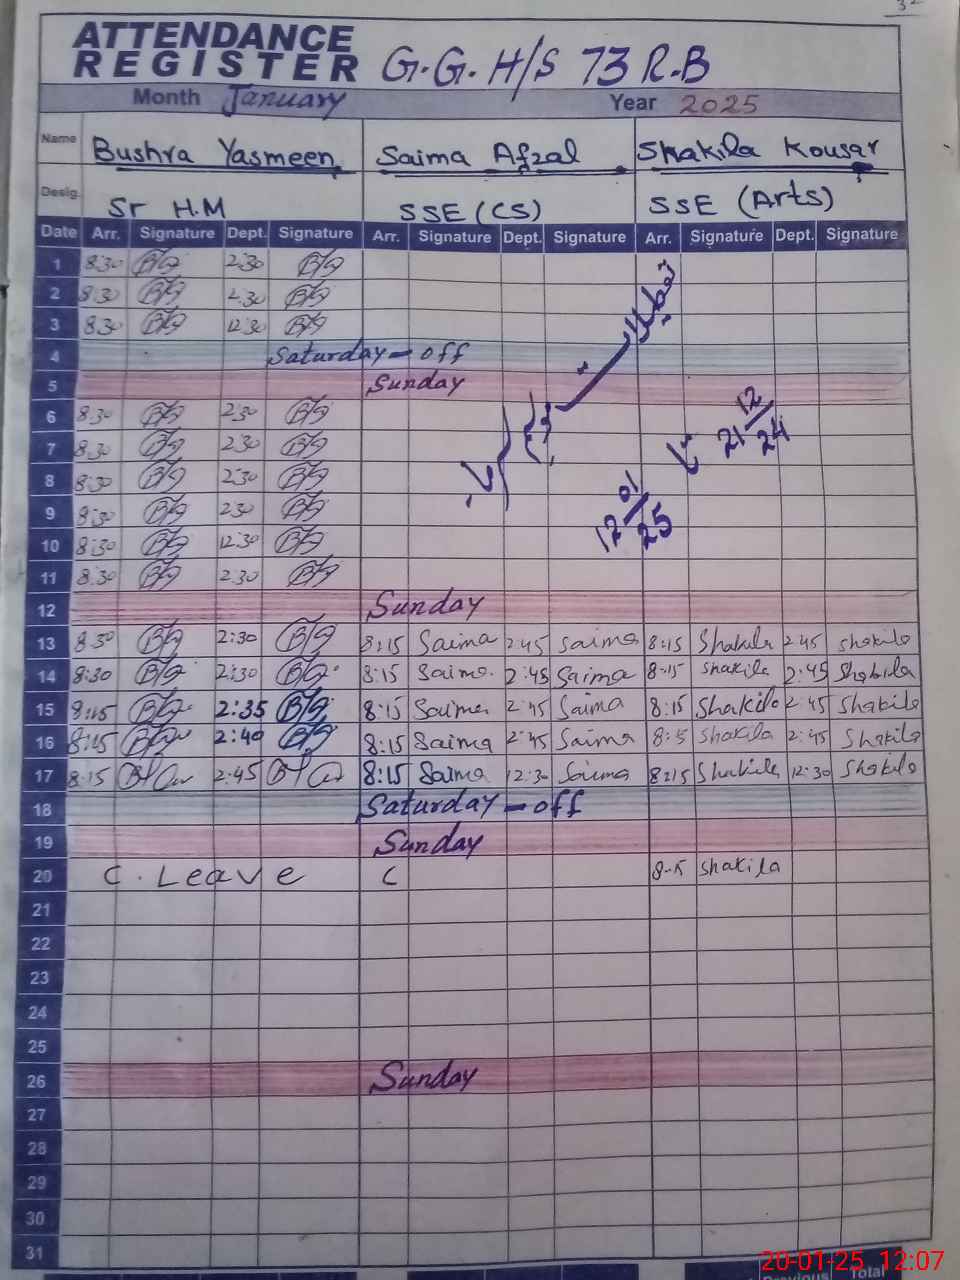 ATTENDANCE
REGISTER G.G.H/S 73 R.B
Month January Year 2025
Name Bushra Yasmeen Saima Afzal Shakila Kousar
Desig. Sr H.M SSE (CS) SSE (Arts)
Date Arr. Signature Dept. Signature Arr. Signature Dept. Signature Arr. Signature Dept. Signature
1 8:30 2:30
2 8:30 2:30
3 8:30 12:30
4 Saturday - off
5 Sunday
6 8:30 2:30
7 8:30 2:30
8 8:30 2:30
9 8:30 2:30
10 8:30 12:30
11 8:30 2:30
تعطیلات
21 12/24
تا
12 01/25
12 Sunday
13 8:30 2:30 8:15 Saima 2:45 Saima 8:15 Shakila 2:45 Shakila
14 8:30 2:30 8:15 Saima 2:45 Saima 8:15 Shakila 2:45 Shakila
15 8:15 2:35 8:15 Saima 2:45 Saima 8:15 Shakila 2:45 Shakila
16 8:15 2:40 8:15 Saima 2:45 Saima 8:15 Shakila 2:45 Shakila
17 8:15 2:45 8:15 Saima 12:30 Saima 8:15 Shakila 12:30 Shakila
18 Saturday - off
19 Sunday
20 C. Leave C 8:15 Shakila
21
22
23
24
25
26 Sunday
27
28
29
30
31
20-01-25 12:07
Previous Total